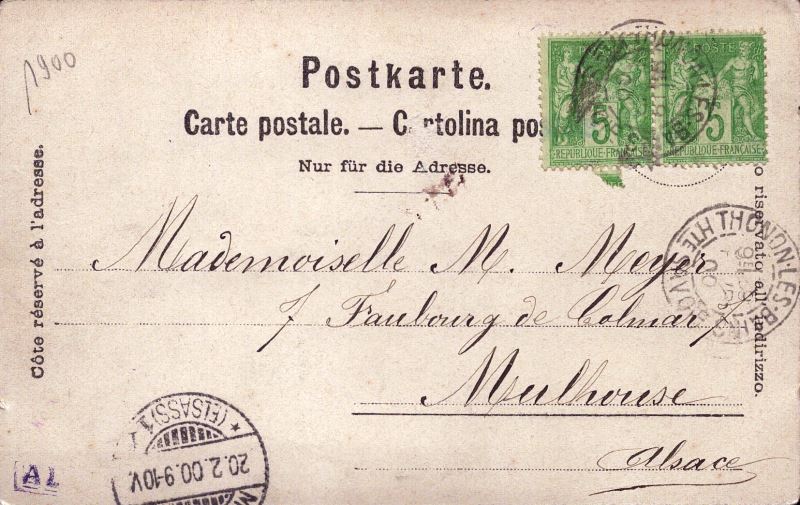 1900
Postkarte.
Carte postale. — Cartolina pos
Nur für die Adresse.
POSTE
5
REPUBLIQUE FRANÇAISE
5
REPUBLIQUE FRANÇAISE
Côte réservé à l'adresse.
o riservato all'indirizzo.
Mademoiselle M. Meyer
7 Faubourg de Colmar
Mulhouse
Alsace
THONON-LES-BAINS
HTE SAVOIE
(ELSASS) 1
20.2.00.9-10V.
AL